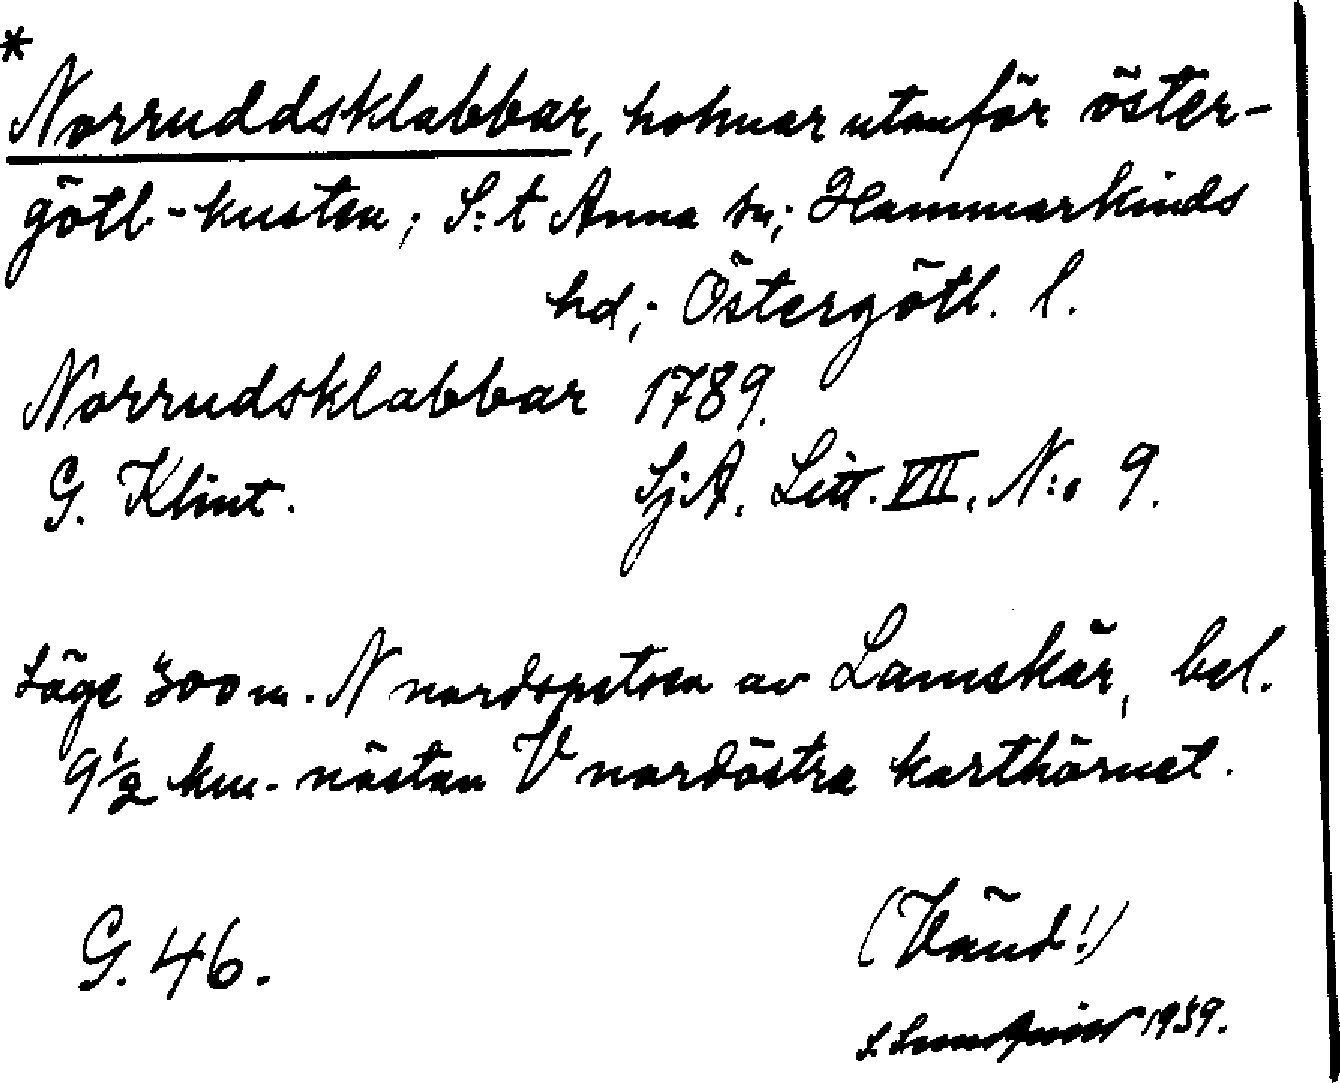 *
Norruddsklabbar, holmar utanför öster-
götl-kusten; S:t Anna sn; Hammarkinds
hd; Östergötl. l.
Norrudsklabbar 1789.
G. Klint. SjA. Litt. VII. N:o 9.
Läge 300 m. N nordspetsen av Lamskär, bel.
9 1/2 km. nästan V nordöstra karthörnet.
G. 46. (Vänd!)
S. Lundqvist 1939.